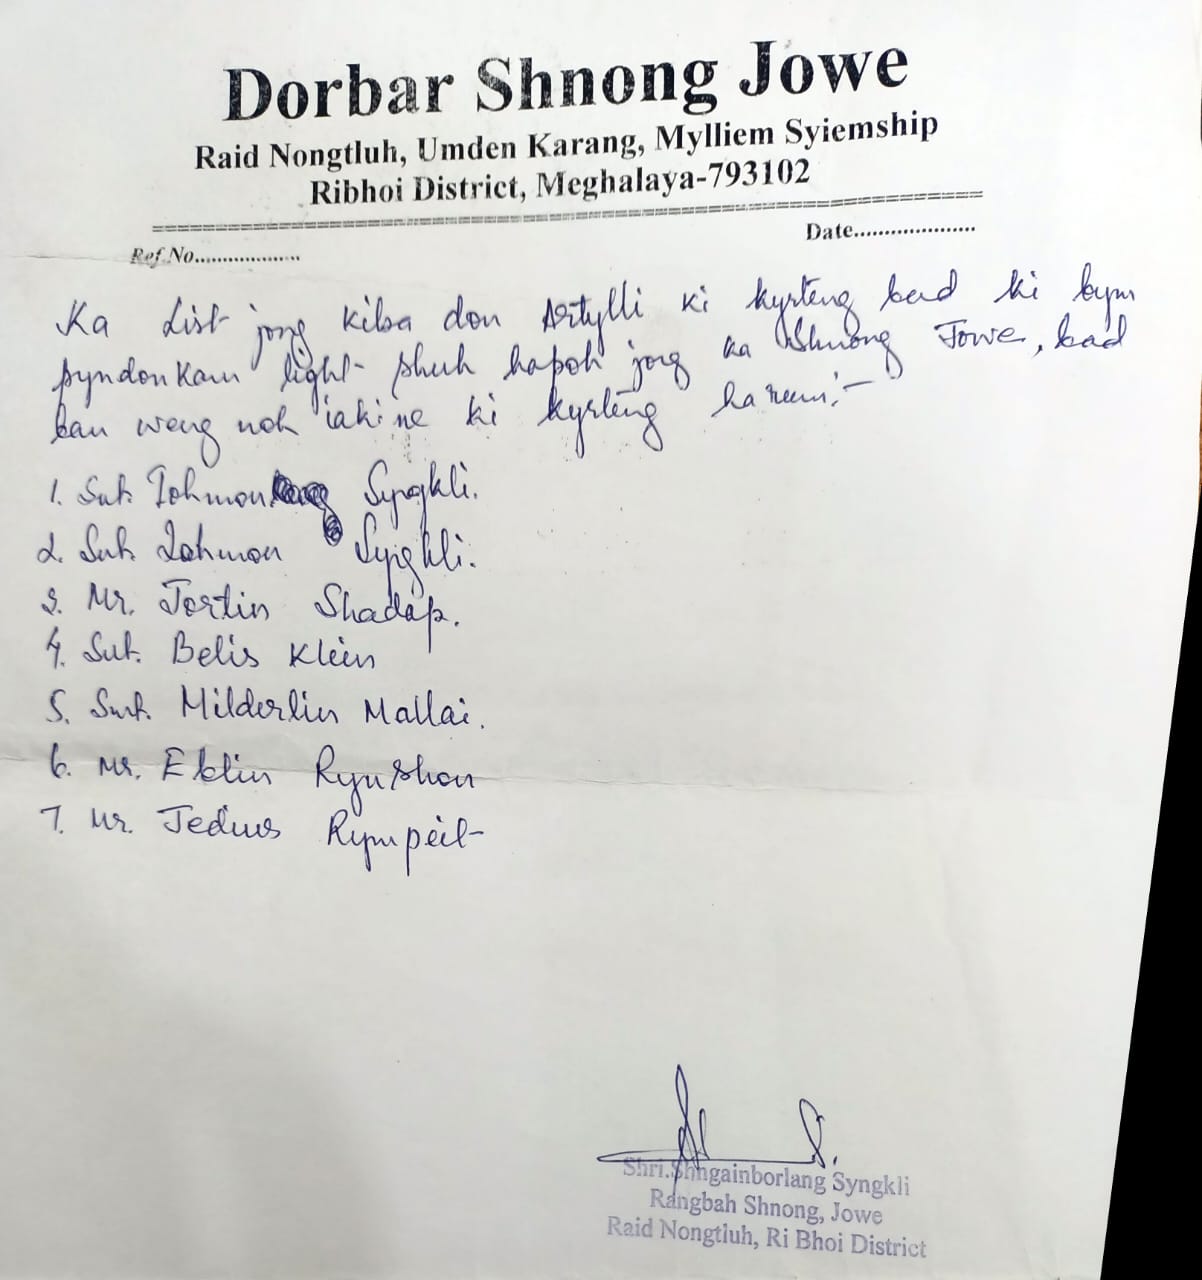 Dorbar Shnong Jowe
Raid Nongtluh, Umden Karang, Mylliem Syiemship
Ribhoi District, Meghalaya-793102
Ref.No..................
Date....................
Ka List jong kiba don artylli ki kyrteng bad ki bym
pyndonkam light shuh hapoh jong ka Shnong Jowe, bad
ban weng noh iakine ki kyrteng harum:-
1. Smt. Syngkli.
2. Smt. Syngkli.
3. Mr. Jortin Shadap.
4. Smt. Belis Klein
5. Smt. Milderlin Mallai.
6. Mr. Eklin Rynshon
7. Mr. Rympeit
Shri.Shngainborlang Syngkli
Rangbah Shnong, Jowe
Raid Nongtluh, Ri Bhoi District